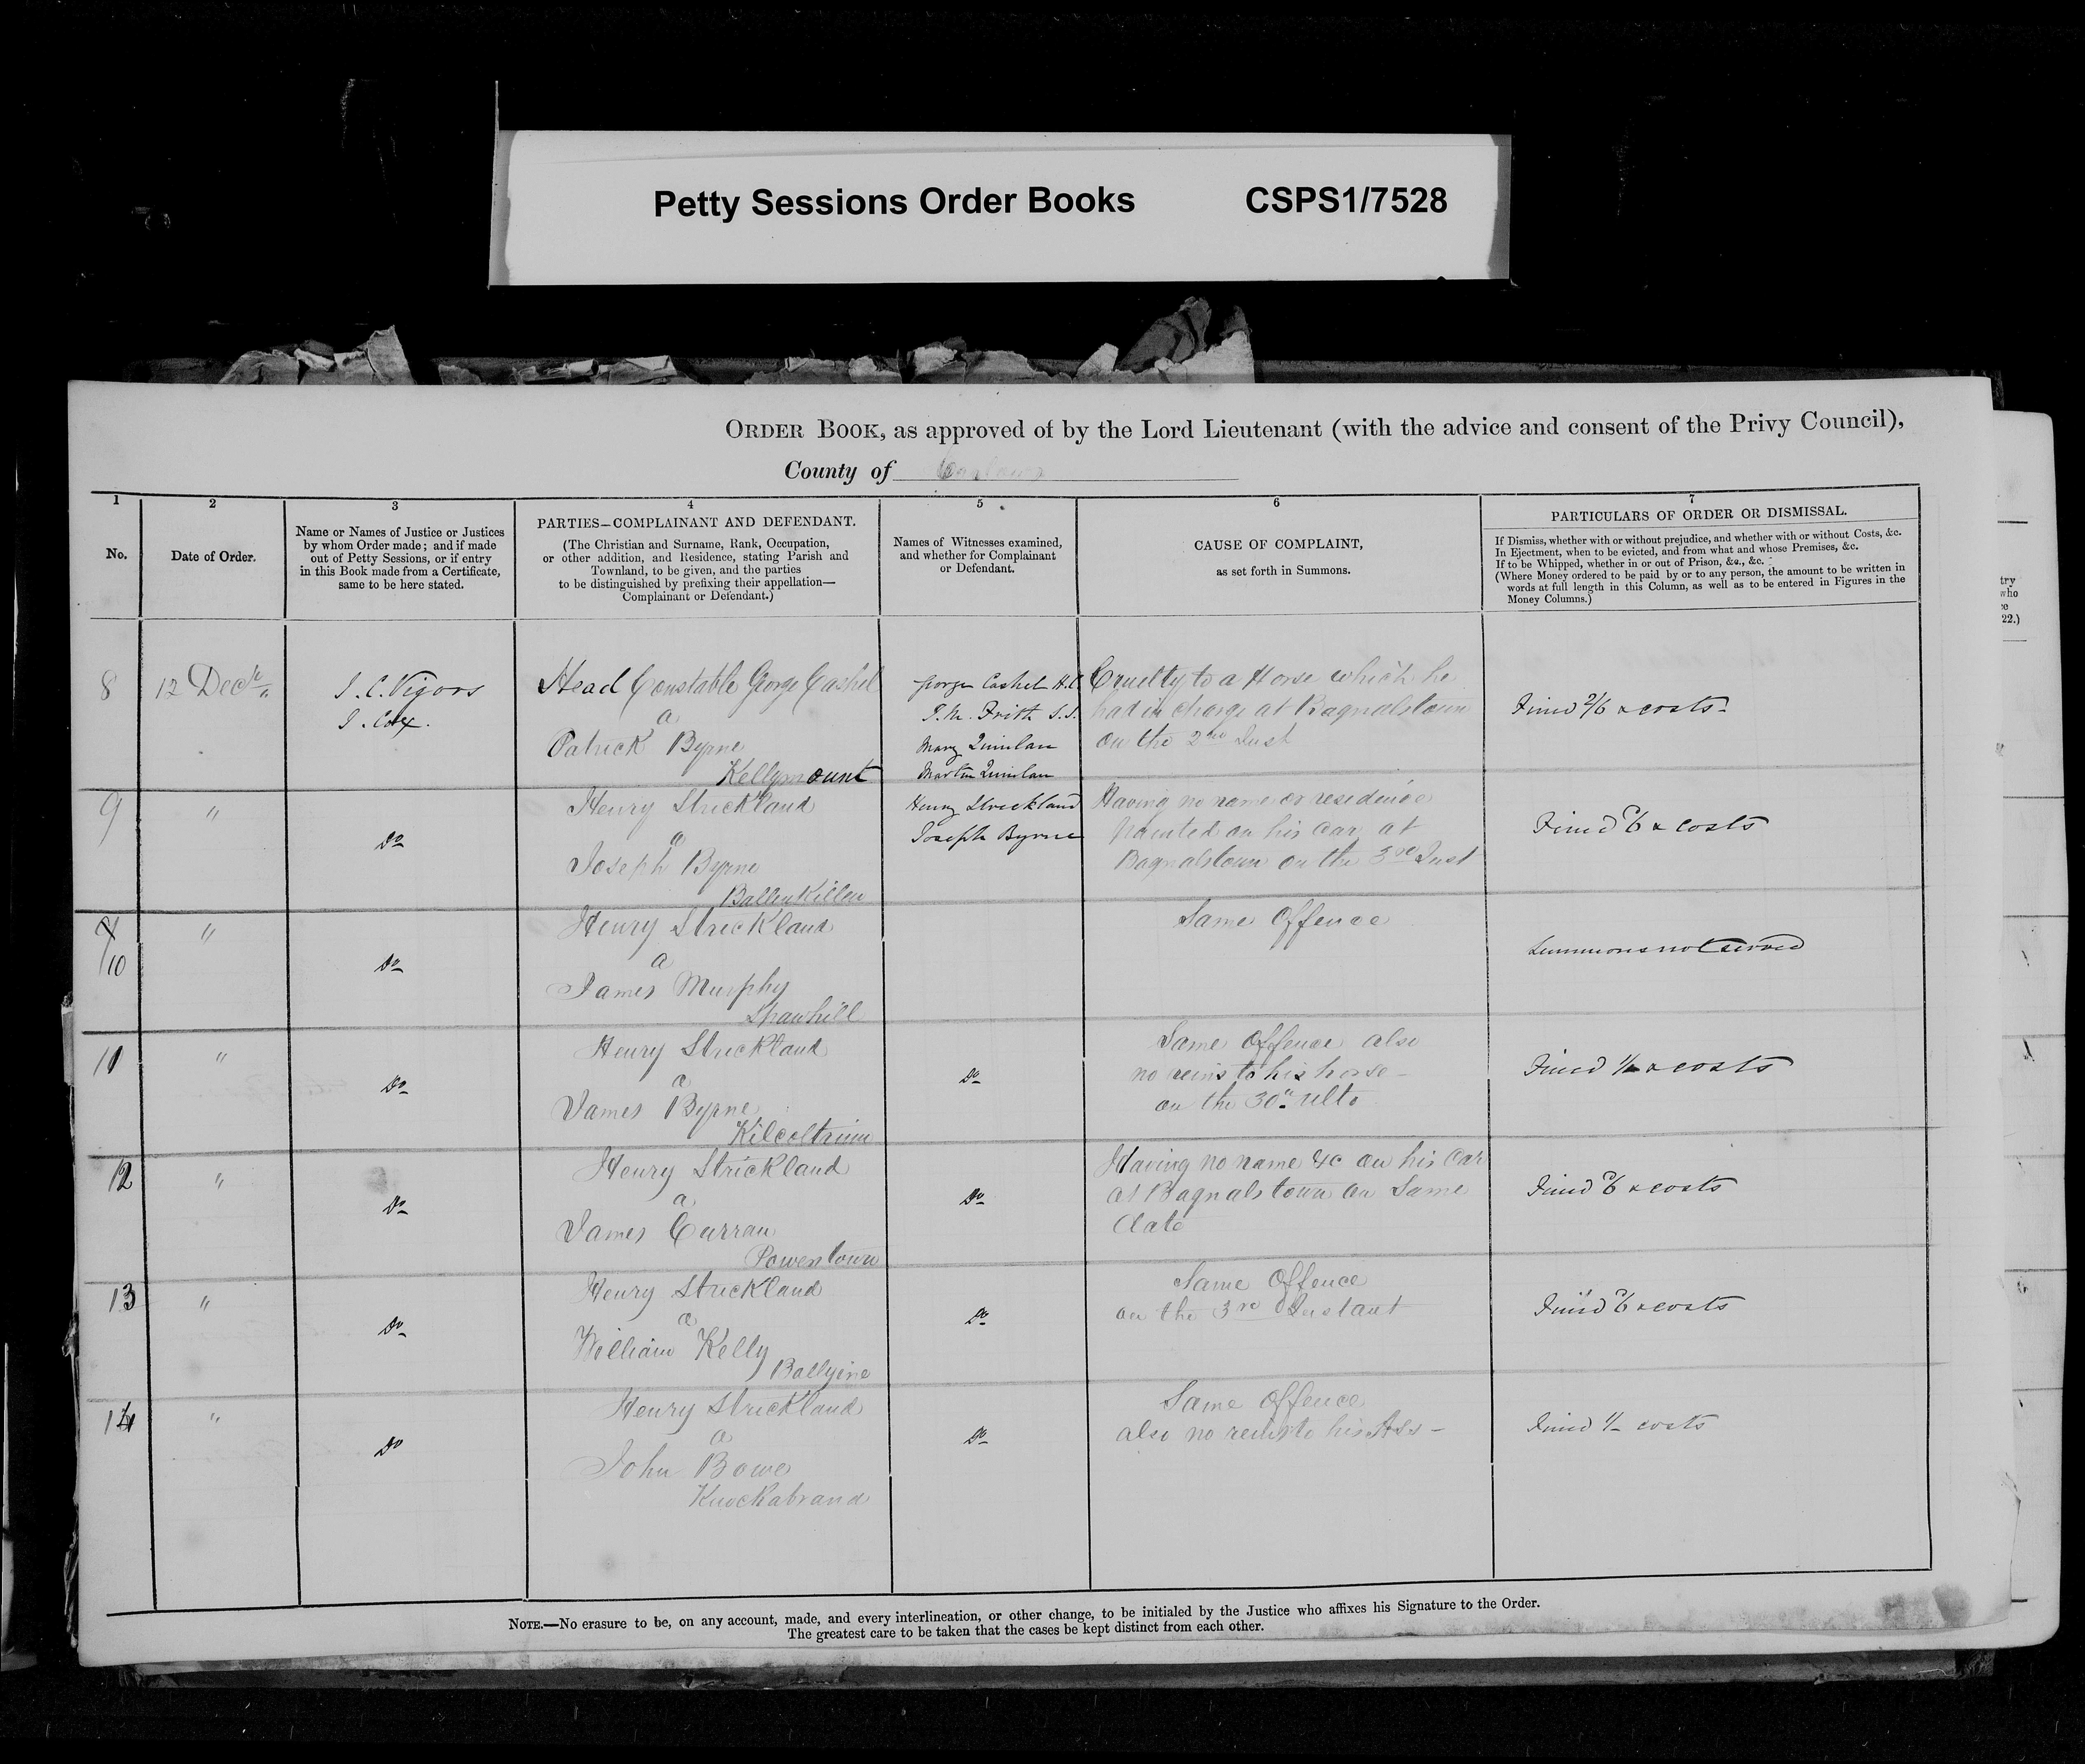 Petty Sessions Order Books CSPS1/7528
ORDER BOOK, as approved of by the Lord Lieutenant (with the advice and consent of the Privy Council),
County of Carlow
1 2 3 4 5 6 7
No.
Date of Order.
Name or Names of Justice or Justices
by whom Order made; and if made
out of Petty Sessions, or if entry
in this Book made from a Certificate,
same to be here stated.
PARTIES—COMPLAINANT AND DEFENDANT.
(The Christian and Surname, Rank, Occupation,
or other addition, and Residence, stating Parish and
Townland, to be given, and the parties
to be distinguished by prefixing their appellation—
Complainant or Defendant.)
Names of Witnesses examined,
and whether for Complainant
or Defendant.
CAUSE OF COMPLAINT,
as set forth in Summons.
PARTICULARS OF ORDER OR DISMISSAL.
If Dismiss, whether with or without prejudice, and whether with or without Costs, &c.
In Ejectment, when to be evicted, and from what and whose Premises, &c.
If to be Whipped, whether in or out of Prison, &c., &c.
(Where Money ordered to be paid by or to any person, the amount to be written in
words at full length in this Column, as well as to be entered in Figures in the
Money Columns.)
try
who
ce
22.)
8
12 Decr "
J. C. Vigors
J. Cox.
Head Constable George Cashel
a
Patrick Byrne
Kellymount
George Cashel H.C.
Frith S.I.
Mary Quinlan
Martin Quinlan
Cruelty to a Horse which he
had in charge at Bagnalstown
on the 2nd Inst
Fined 2/6 & costs-
9
"
Do
Henry Strickland
a
Joseph Byrne
Ballenkillen
Henry Strickland
Joseph Byrne
Having no name or residence
painted on his Car at
Bagnalstown on the 3rd Inst
Fined 6 & costs
10
"
Do
Henry Strickland
a
James Murphy
Shawhill
Same Offence
Summons not served
11
"
Do
Henry Strickland
a
James Byrne
Kilcoltrim
Do
Same Offence also
no reins to his horse-
on the 30th Ulto
Fined 1/- & costs
12
"
Do
Henry Strickland
a
James Curran
Powerstown
Do
Having no name &c on his Car
at Bagnalstown on Same
date
Fined 6 & costs
13
"
Do
Henry Strickland
a
William Kelly
Ballyine
Do
Same Offence
on the 3rd Instant
Fined 6 & costs
14
"
Do
Henry Strickland
a
John Bowe
Knockabrand
Do
Same Offence
also no reins to his Ass-
Fined 1/- costs
NOTE.—No erasure to be, on any account, made, and every interlineation, or other change, to be initialed by the Justice who affixes his Signature to the Order.
The greatest care to be taken that the cases be kept distinct from each other.